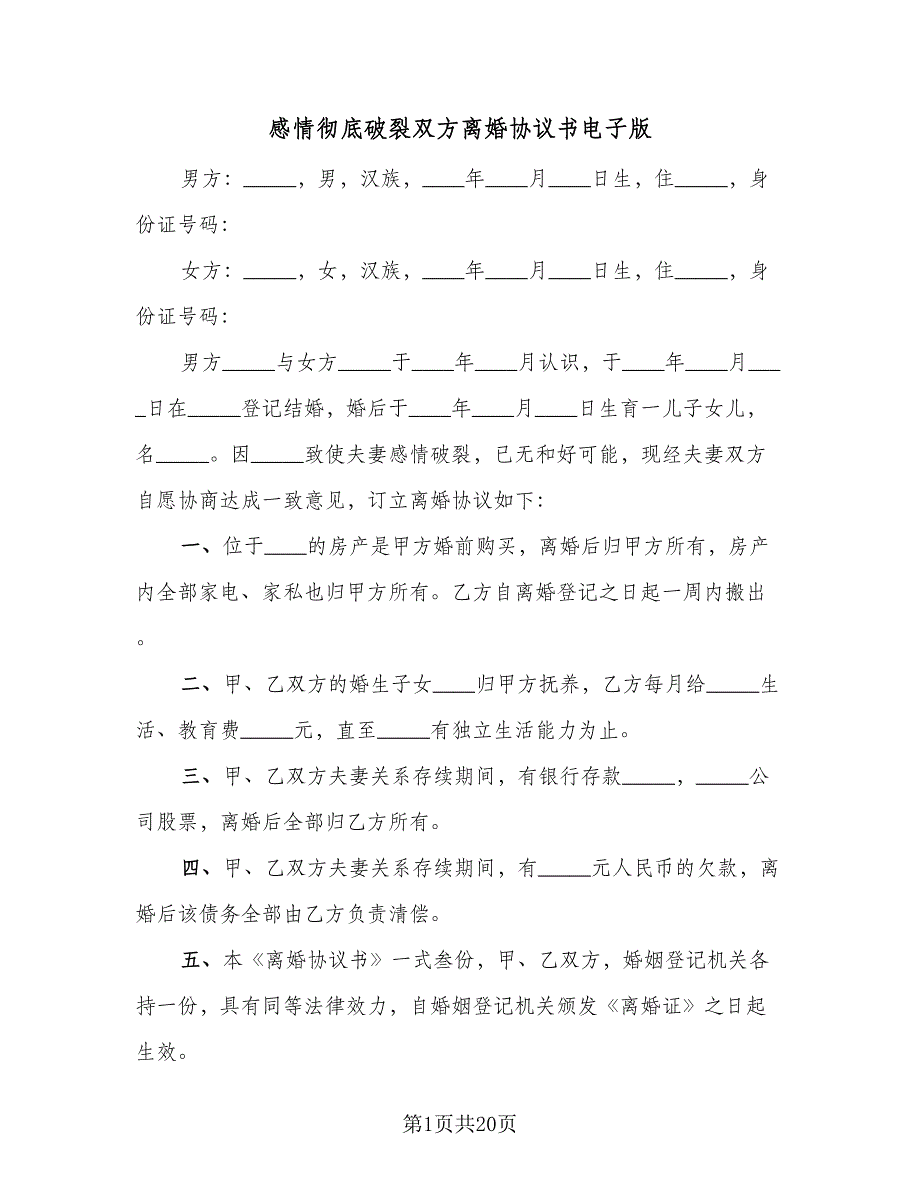 感情彻底破裂双方离婚协议书电子版
男方：_____，男，汉族，____年____月____日生，住_____，身
份证号码：
女方：_____，女，汉族，____年____月____日生，住_____，身
份证号码：
男方_____与女方_____于____年____月认识，于____年____月___
_日在_____登记结婚，婚后于____年____月____日生育一儿子女儿，
名_____。因_____致使夫妻感情破裂，已无和好可能，现经夫妻双方
自愿协商达成一致意见，订立离婚协议如下：
一、位于____的房产是甲方婚前购买，离婚后归甲方所有，房产
内全部家电、家私也归甲方所有。乙方自离婚登记之日起一周内搬出
。
二、甲、乙双方的婚生子女____归甲方抚养，乙方每月给_____生
活、教育费_____元，直至_____有独立生活能力为止。
三、甲、乙双方夫妻关系存续期间，有银行存款_____，_____公
司股票，离婚后全部归乙方所有。
四、甲、乙双方夫妻关系存续期间，有_____元人民币的欠款，离
婚后该债务全部由乙方负责清偿。
五、本《离婚协议书》一式叁份，甲、乙双方，婚姻登记机关各
持一份，具有同等法律效力，自婚姻登记机关颁发《离婚证》之日起
生效。
第1页共20页